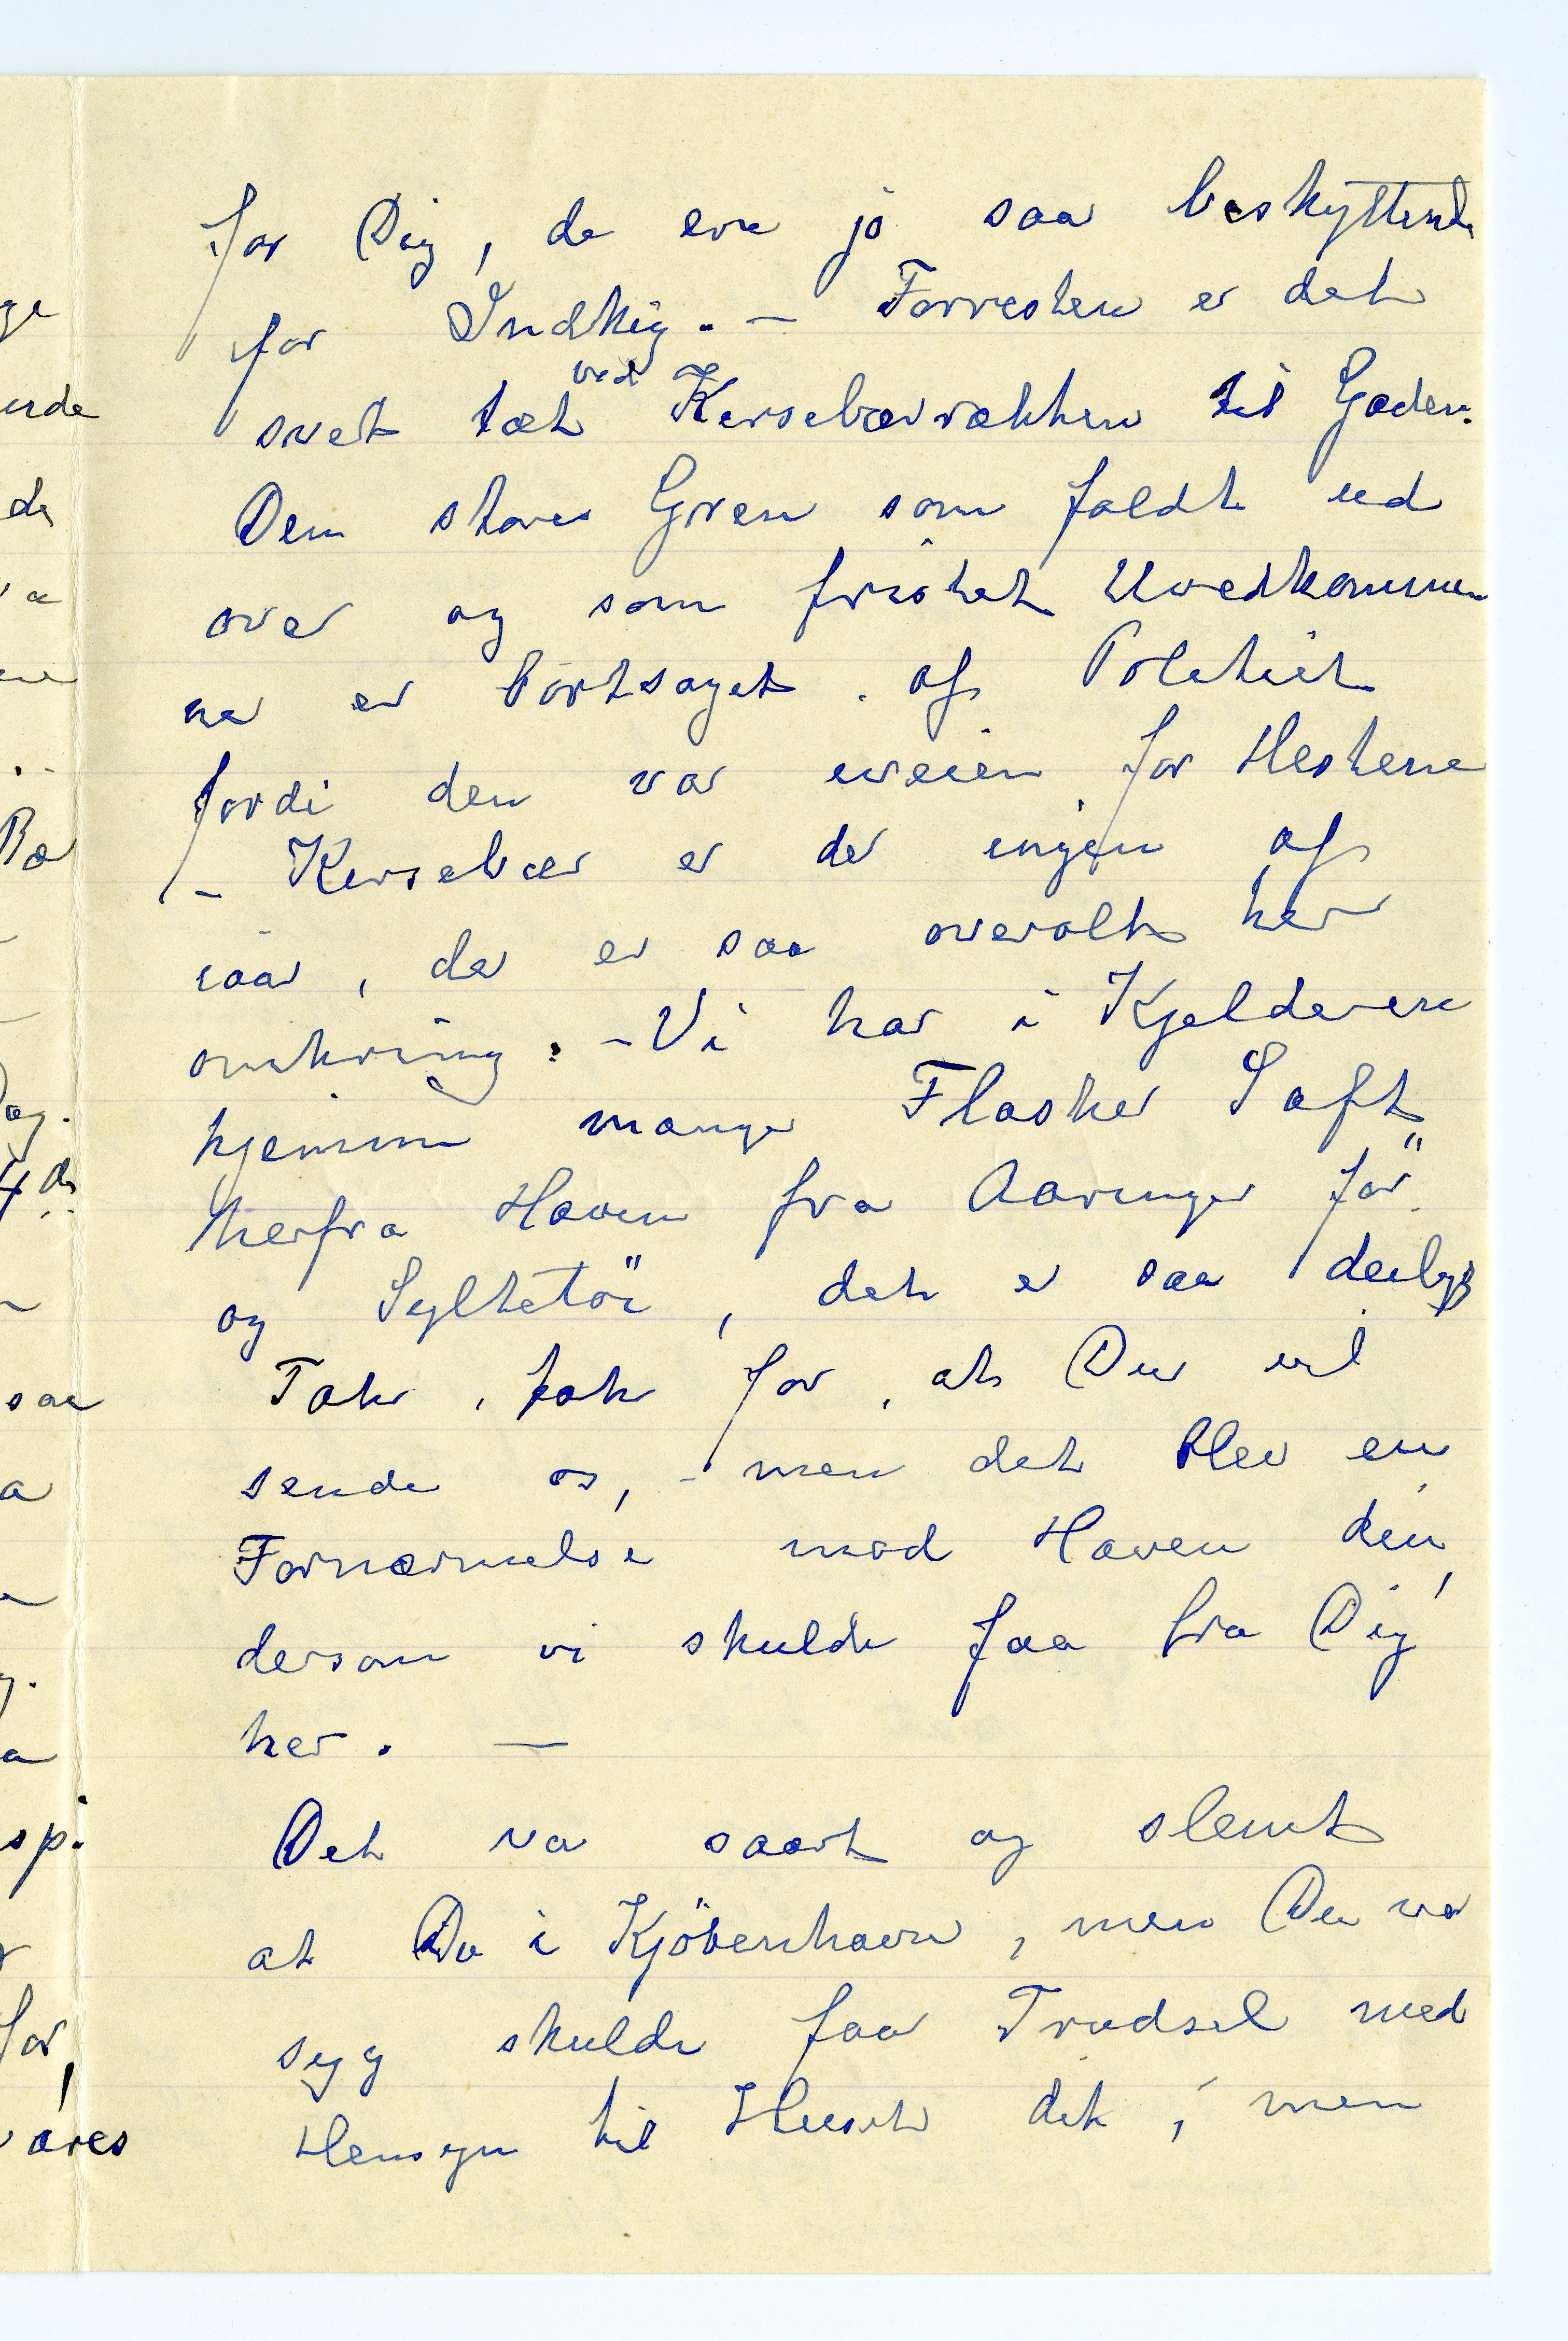 for Dig, de ere jo saa beskyttende
for Indkig. – Forresten er det
svet tæt ved Kersebærrækken til Gaden.
Den store Gren som faldt ud
over og som fristet Uvedkommen
ne er bortsaget af Politiet
fordi den var iveien for Hestene
– Kersebær er der ingen af
iaar, der er saa overalt her
omkring. – Vi har i Kjelderen
hjemme mange Flasker Saft
herfra Haven fra Aaringer før
og Syltetöi, det er saa deiligt
Tak, tak for, at Du vil
sende os, – men det blev en
Fornærmelse mod Haven din,
dersom vi skulde faa fra Dig
her. —
Det va saart og slemt
at Du i Kjöbenhavn, men Du va
syg skulde faa Trudsel med
Hensyn til Huset dit, men
ge
ende
de
a
Bæ
Dag.
4 de
saa
a
a
sp.
for,
øres